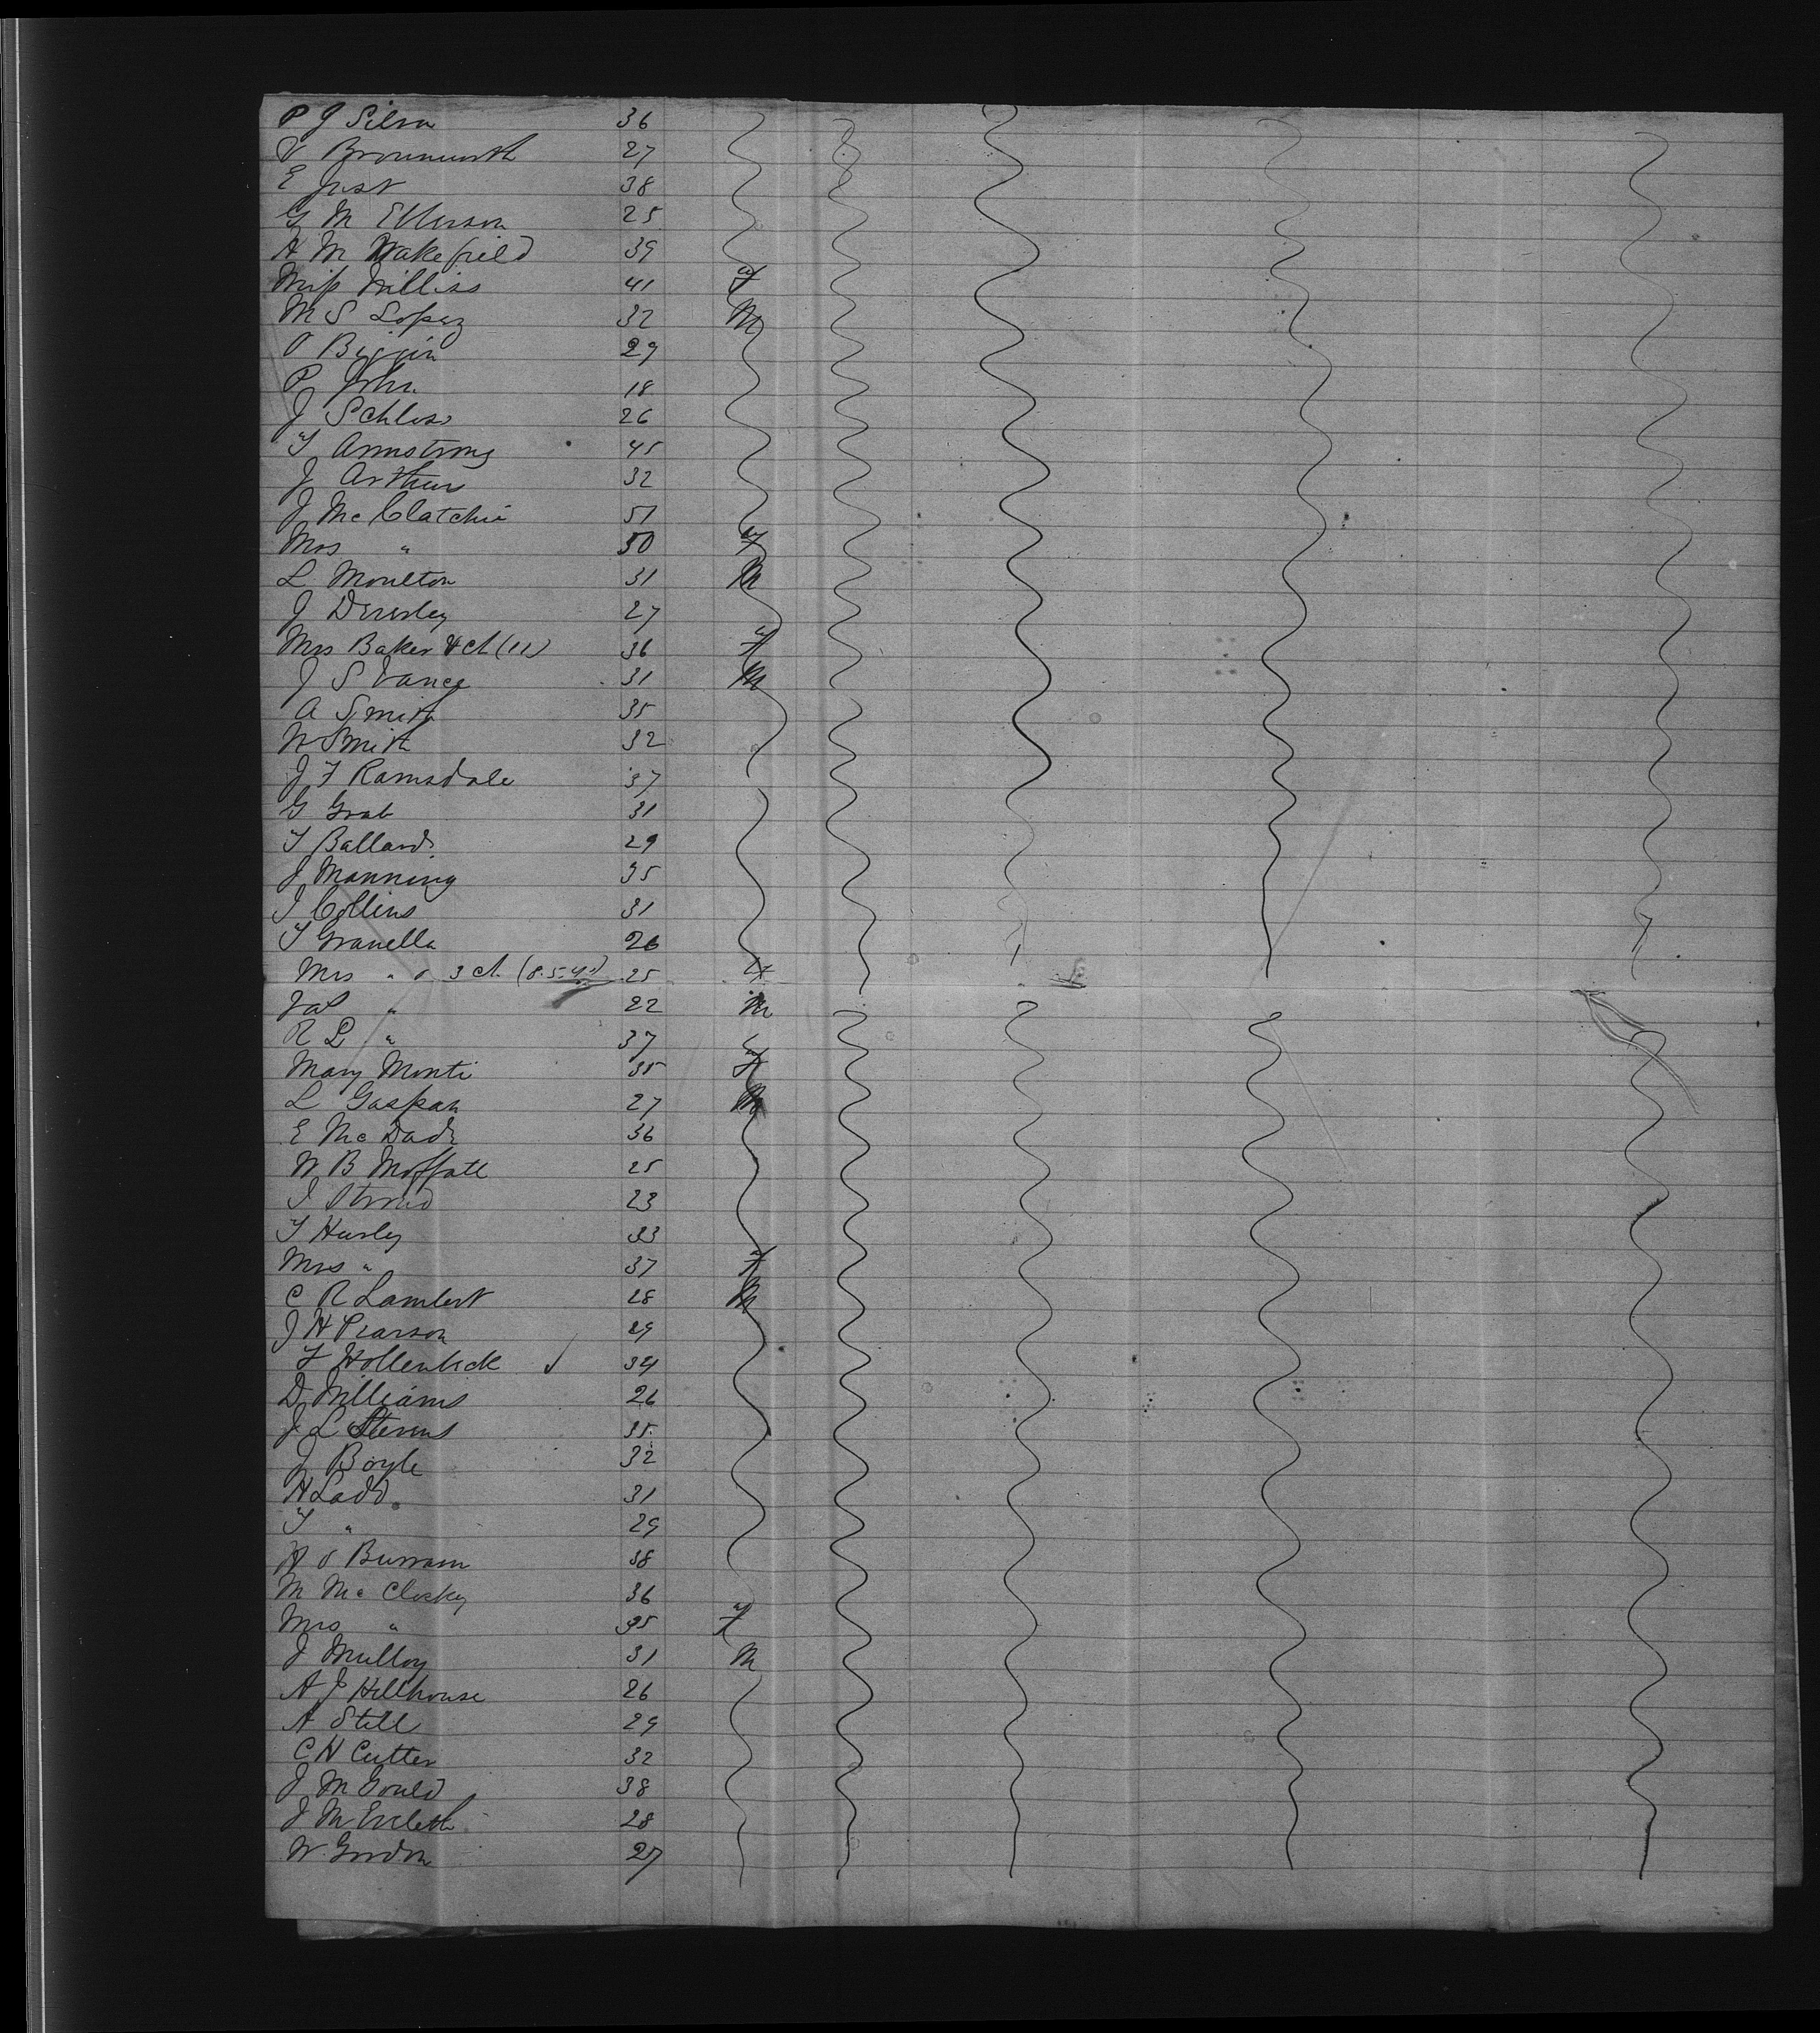 P J Silva 36
V Bronmunth 27
E Just 38
G M Ellerson 25
A M Wakefield 39
Miss Williss 41 f
M S Lopez 32 M
O Biggin 29
P John 18
J Schloss 26
T Armstrong 45
J Arthur 32
J McClatchie 51
Mrs " 50 f
L Moulton 31 M
J Dewsley 27
Mrs Baker & ch (11) 36 f
J S Vance 31 M
A Smith 35
W Smith 32
J F Ramsdale 37
G Grab 31
T Ballard 29
J Manning 35
J Collins 31
T Granella 26
Mrs " & 3 ch 25 f
" 22 M
R L " 37
Mary Monti 35 f
L Gaspar 27 M
E McDade 36
W B Moffatt 25
J Stroud 23
T Hurley 33
Mrs " 37 f
C R Lambert 28 M
J H Pearson 29
F Hollenbeck ✓ 34
D Williams 26
J L Stevens 35
J Boyle 32
H Ladd 31
T " 29
38
M McClosky 36
Mrs " 35 f
J Mulloy 31 M
A J Hillhouse 26
A Still 29
C H Cutter 32
J M Gould 38
J M Eveleth 28
W Gordon 27